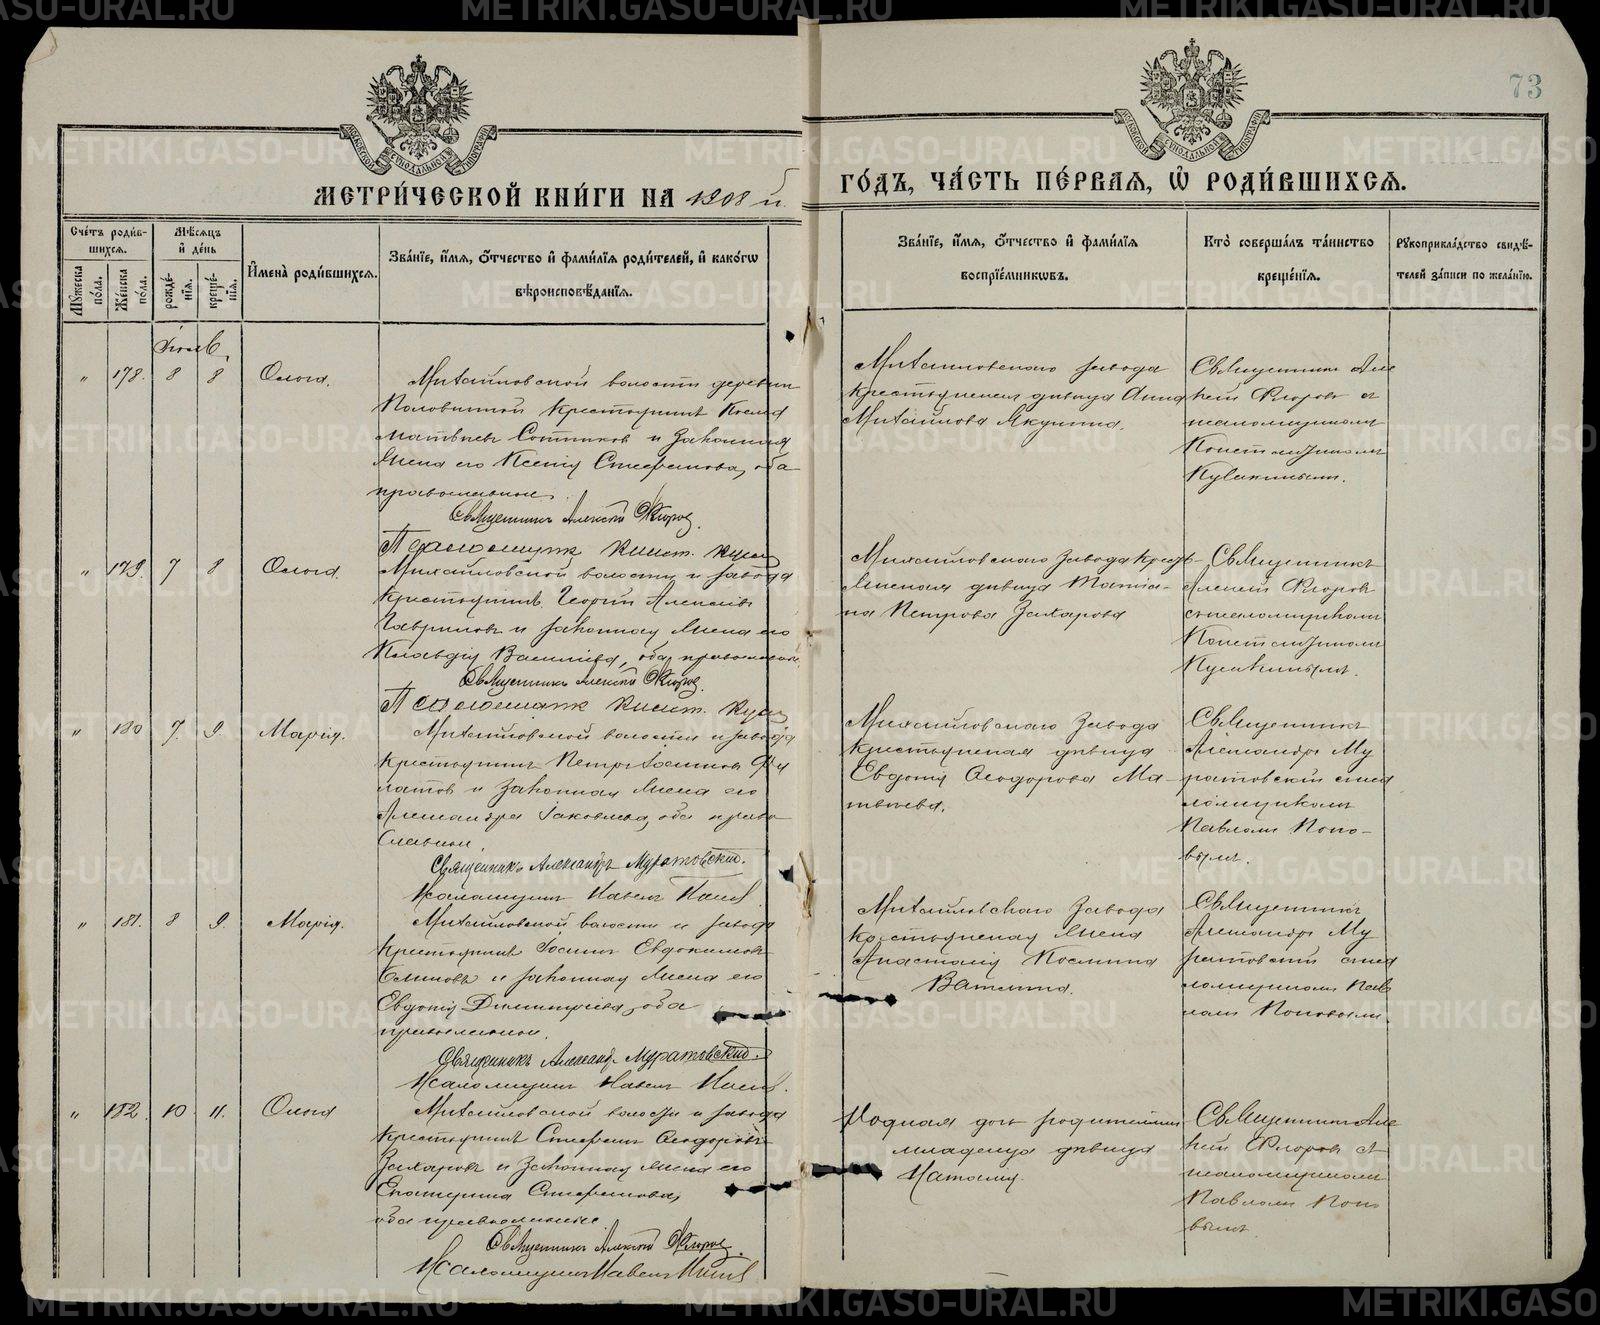 73
МЕТРИ́ЧЕСКОЙ КНИ́ГИ НА 1908 й
ГО́ДЪ, ЧА́СТЬ ПЕ́РВАЯ, Ѡ҆ РОДИ́ВШИХСЯ.
Сче́тъ роди́в-
шихся.
Мꙋжеска по́ла.
Же́нска по́ла.
Мѣ́сяцъ
и҆ де́нь
рожде́-
нїя.
креще́-
нїя.
И҆мена̀ роди́вшихся.
Зва́нїе, и҆́мя, ѻ҆́тчество и҆ фами́лїя роди́телей, и҆ како́гѡ
вѣроисповѣ́данїя.
Зва́нїе, и҆́мя, ѻ҆́тчество и҆ фами́лїя
воспрїе́мниковъ.
Кто̀ соверша́лъ та́инство
креще́нїя.
Рꙋкоприкла́дство свидѣ́-
телей за́писи по жела́нїю.
„ 178. 8 8
Ольга.
Михайловской волости деревни
Половинной крестьянинъ Косма
Матвѣевъ Сотниковъ и законная
жена его Ксенія Стефанова, оба
православные.
Священникъ Алексій Флоровъ.
Михайловскаго завода
крестьянская дѣвица Анна
Михайлова Якунина.
Священникъ Але
ксѣй Флоровъ съ
псаломщикомъ
Константиномъ
„ 179. 7 8
Ольга.
Михайловской волости и завода
крестьянинъ Георгій Алексѣевъ
Гавриловъ и законная жена его
Клавдія Василіева, оба православные.
Священникъ Алексій Флоровъ.
Михайловскаго завода крестъ-
янская дѣвица Татіа-
на Петрова Захарова
Священникъ
Алексѣй Флоровъ
съ псаломщикомъ
Константиномъ
„ 180 7. 9.
Марія.
Михайловской волости и завода
крестьянинъ Петръ Іоанновъ Фи
латовъ и законная жена его
Александра Іаковлева, оба право
славные.
Священникъ Александръ Муратовскій.
Псаломщикъ Павелъ Поповъ
Михайловскаго завода
крестьянская дѣвица
Евдокія Ѳеодорова Ма-
твѣева.
Священникъ
Александръ Му
ратовскій съ пса
ломщикомъ
Павломъ Попо-
вымъ.
„ 181. 8 9.
Марія.
Михайловской волости и завода
крестьянинъ Іоаннъ Евдокимовъ
и законная жена его
Евдокія Димитріева, оба
православные.
Священникъ Александръ Муратовскій.
Псаломщикъ Павелъ Поповъ.
Михайловскаго завода
крестьянская жена
Анастасія Космина
Ватина.
Священникъ
Александръ Му
ратовскій съ пса
ломщикомъ Пав
ломъ Поповымъ.
„ 182. 10. 11.
Ольга
Михайловской волости и завода
крестьянинъ Стефанъ Ѳеодоровъ
Захаровъ и законная жена его
Екатерина Стефанова,
оба православные.
Священникъ Алексій Флоровъ.
Псаломщикъ Павелъ Поповъ
Родная дочь родителей
младенца дѣвица
Наталія.
Священникъ Але
ксѣй Флоровъ съ
псаломщикомъ
Павломъ Попо
вымъ
METRIKI.GASO-URAL.RU